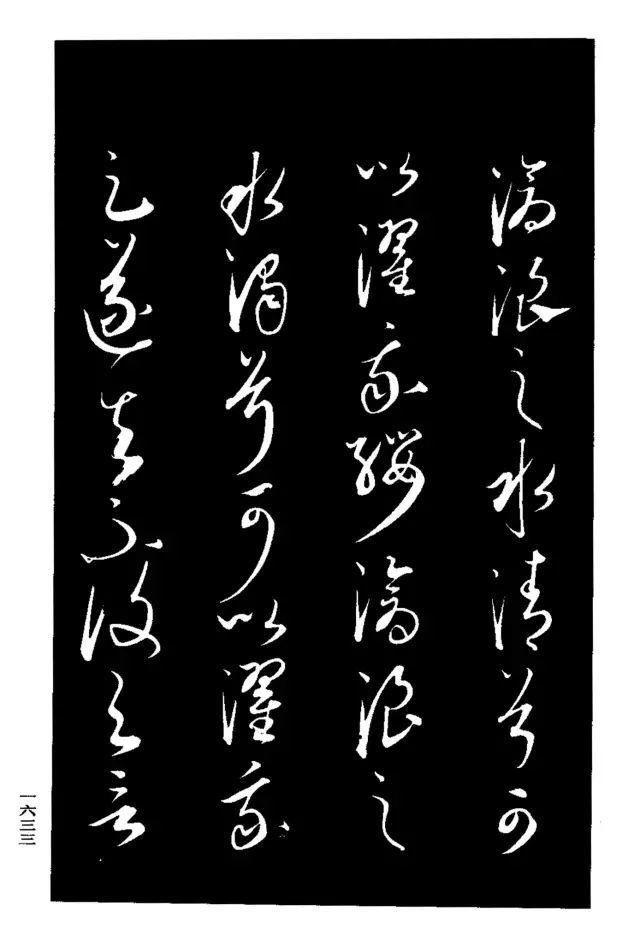 滄浪之水清兮可
以濯我纓滄浪之
水濁兮可以濯我
足遂去不復與言
一六三三